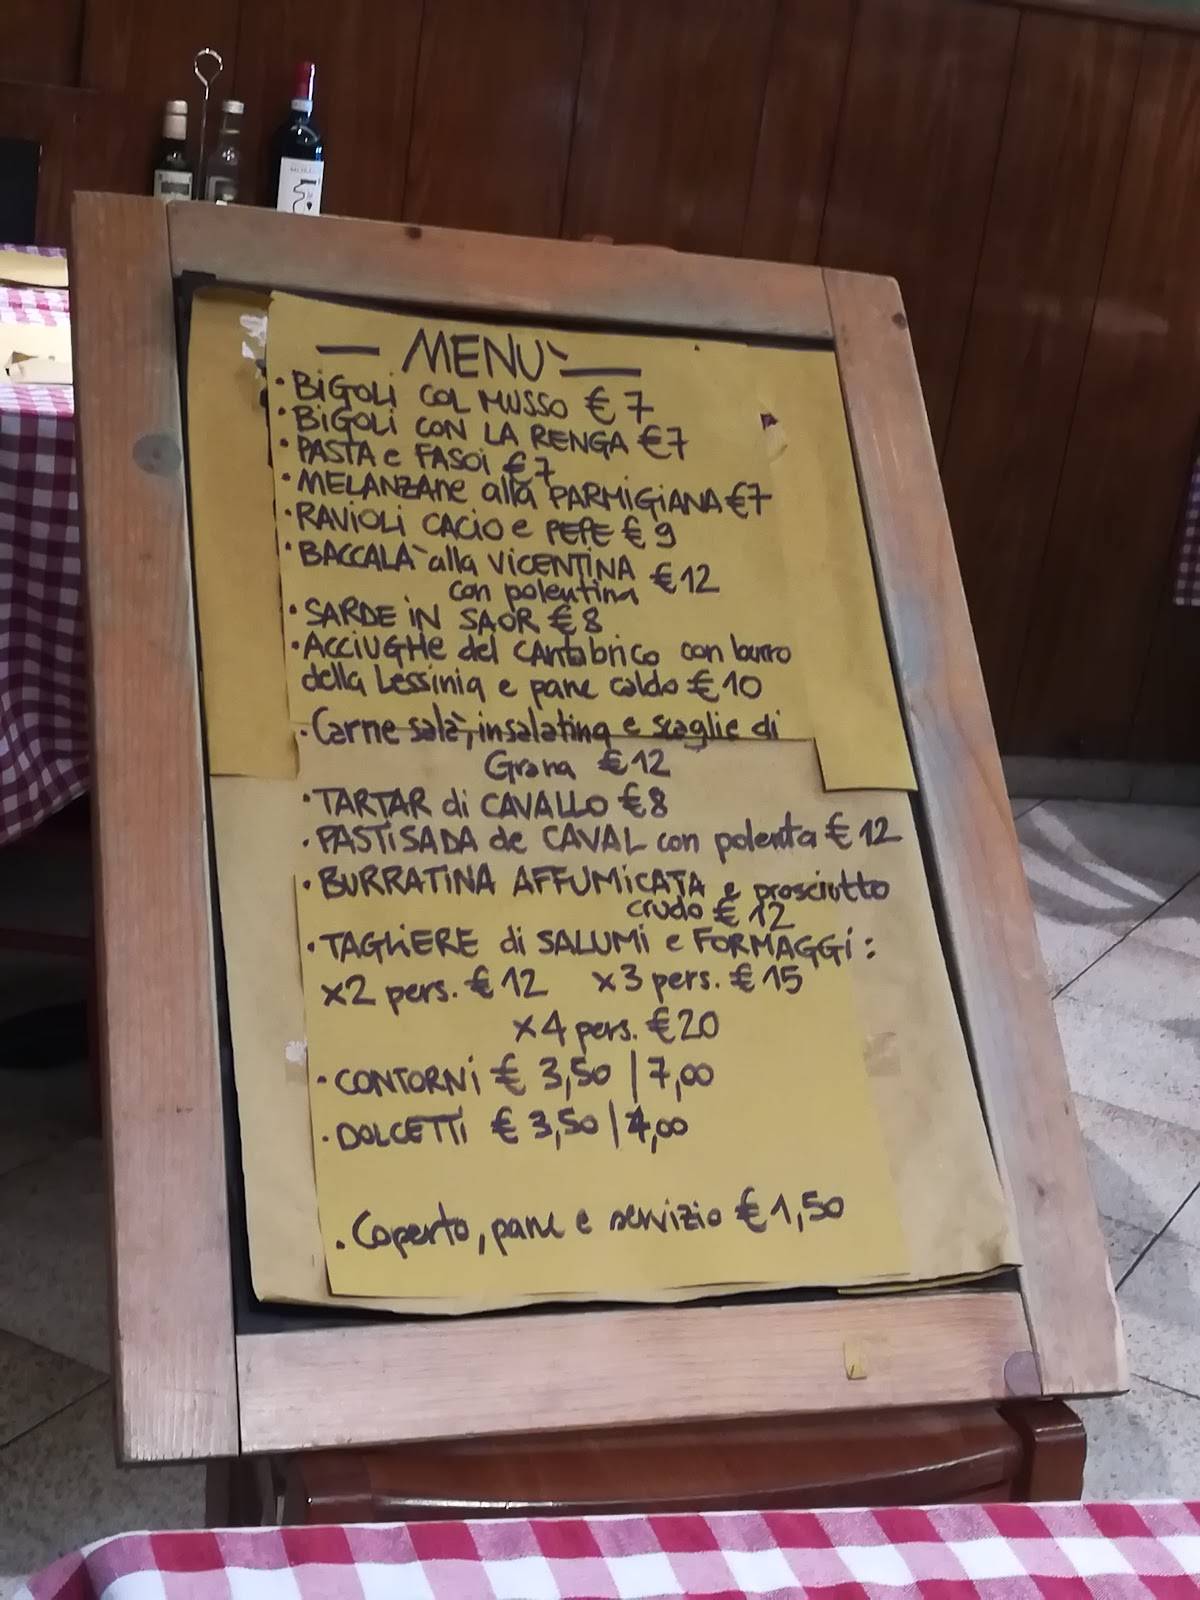 — MENU` —
• BIGOLI COL MUSSO € 7
• BIGOLI CON LA RENGA €7
• PASTA e FASOI €7
• MELANZANE alla PARMIGIANA €7
• RAVIOLI CACIO e PEPE € 9
• BACCALA` alla VICENTINA € 12
con polentina
• SARDE IN SAOR € 8
• ACCIUGHE del CANTABRICO con burro
della Lessinia e pane caldo € 10
• Carne salà, insalatina e scaglie di
Grana € 12
• TARTAR di CAVALLO € 8
• PASTISADA de CAVAL con polenta € 12
• BURRATINA AFFUMICATA e prosciutto
crudo € 12
• TAGLIERE di SALUMI e FORMAGGI:
x2 pers. € 12 x3 pers. € 15
x4 pers. € 20
• CONTORNI € 3,50 | 7,00
• DOLCETTI € 3,50 | 4,00
• Coperto, pane e servizio € 1,50